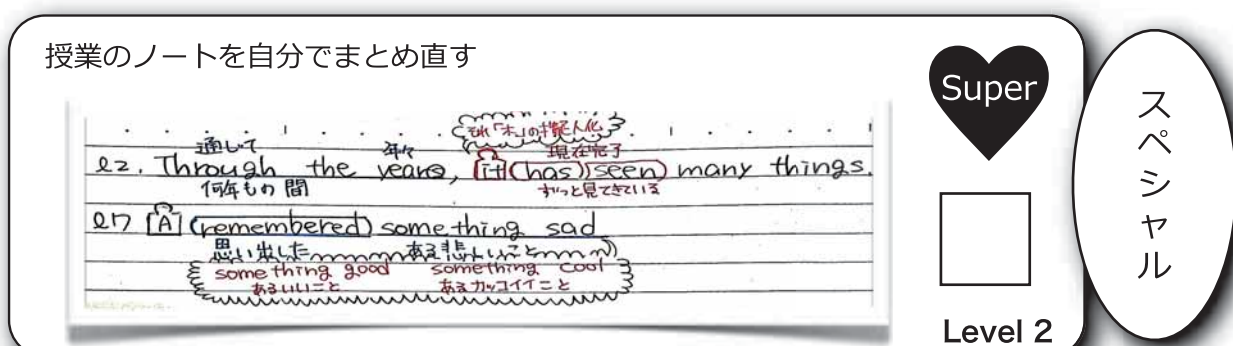 授業のノートを自分でまとめ直す
Super
スペシャル
それ「木」の擬人化
通して 年々 現在完了
l2. Through the years, it (has) (seen) many things.
何年もの間 ずっと見てきている
l17 [A] (remembered) something sad
思い出した ある悲しいこと
something good something cool
あるいいこと あるカッコイイこと
Level 2